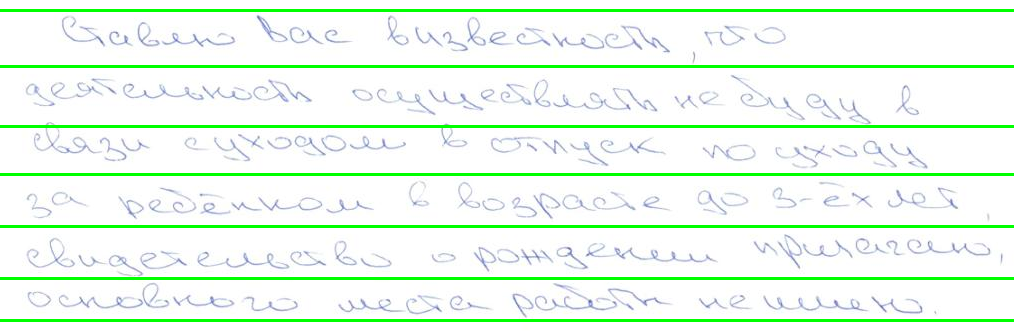 Ставлю Вас визвестность, что
деятельность осуществлять не буду в
связи суходом в отпуск по уходу
за ребёнком в возрасте до 3-ёх лет,
свидетельство о рождении прилагаю,
основного места работы не имею.